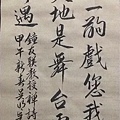 一齣戲您我
地是舞台
遇
鍾友聯教授禪詩
甲午新春